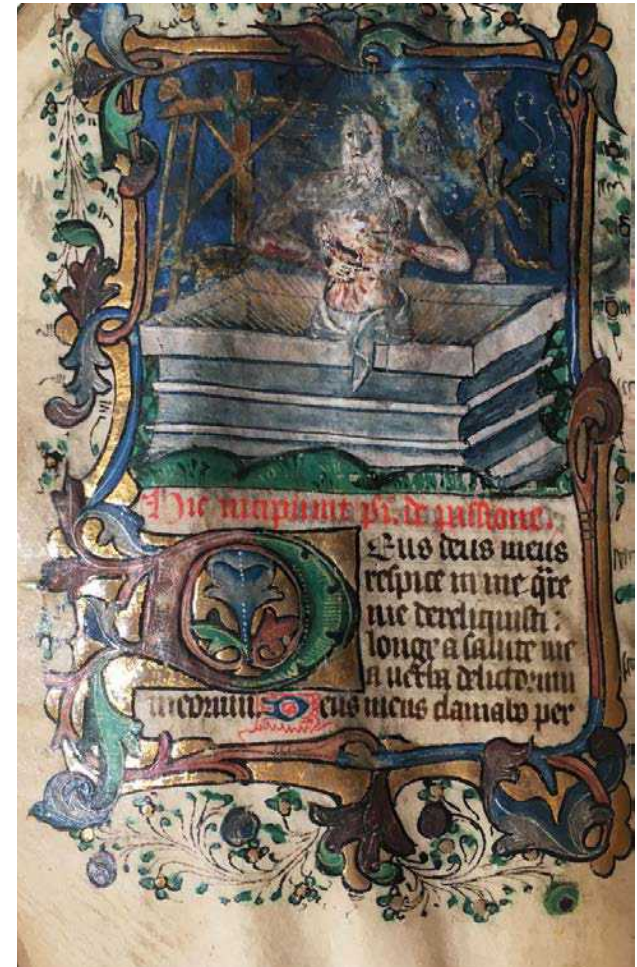 Hic incipiunt ps. de passione.
Deus deus meus
respice in me q̄re
me dereliquisti :
longe a salute me
a uerba delictorum
meorum. Deus meus clamabo per